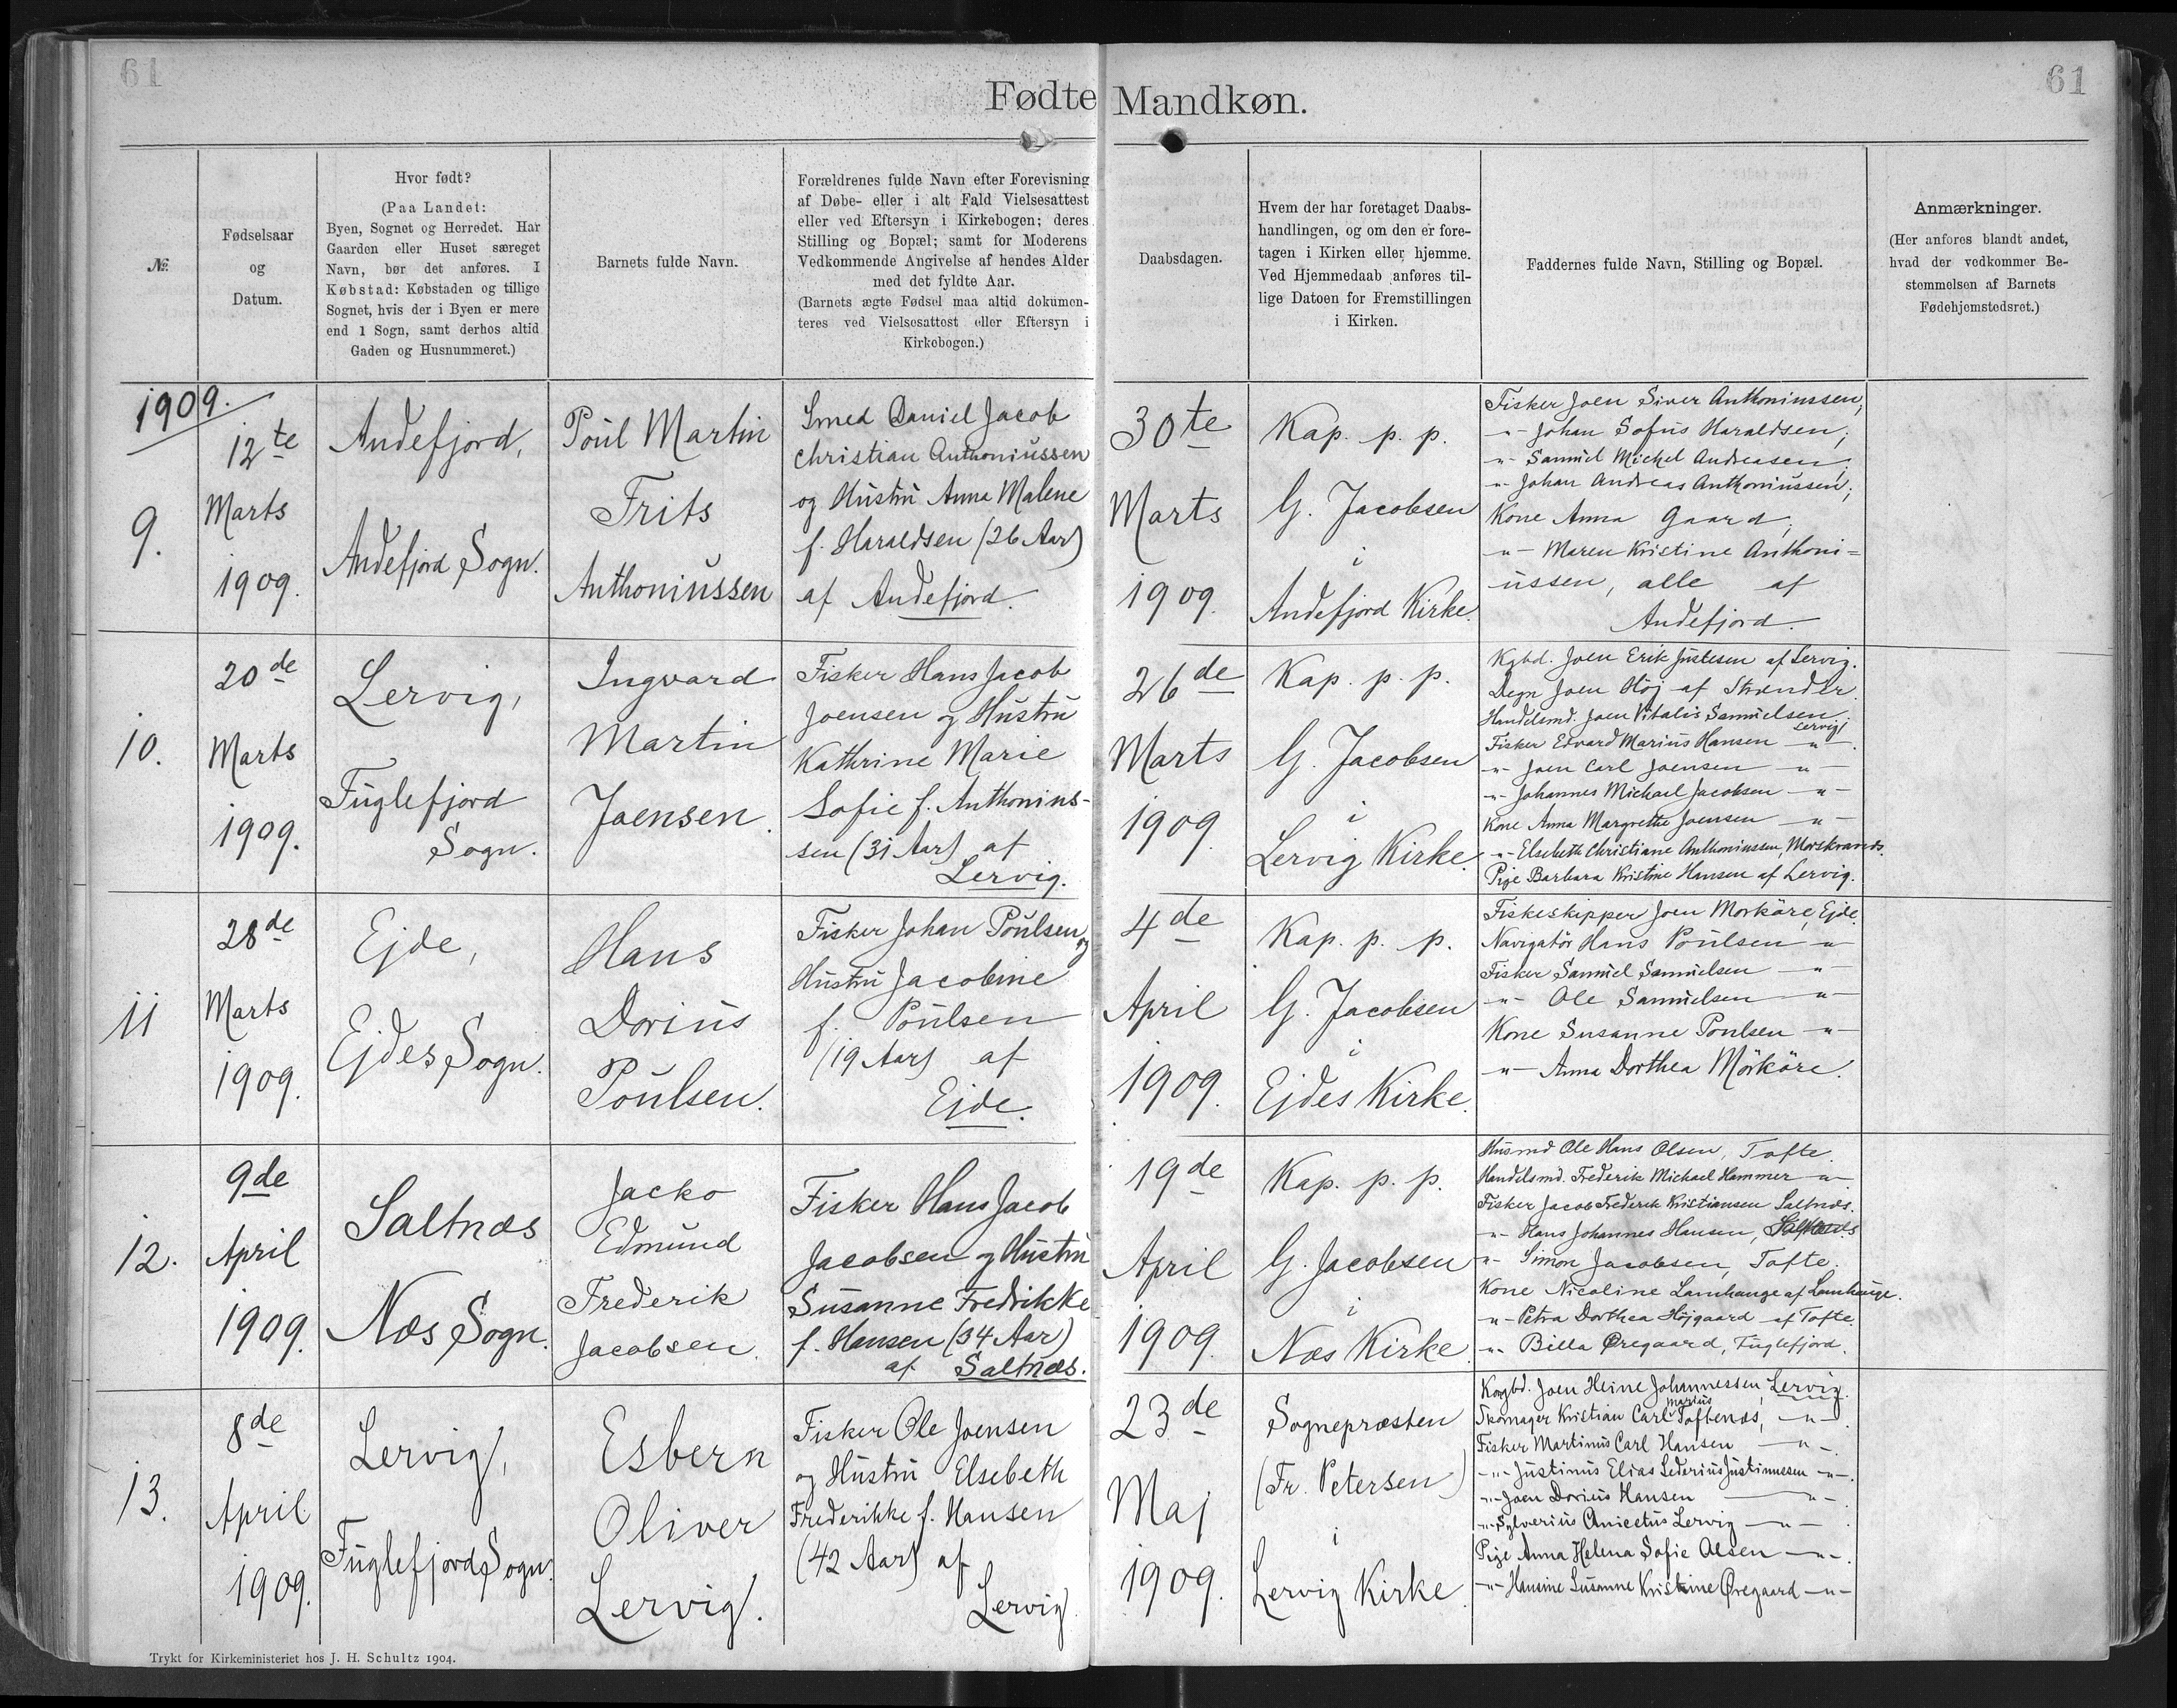 61
61
Fødte Mandkøn.
№
Fødselsaar
og
Datum.
Hvor født?
(Paa Landet:
Byen, Sognet og Herredet. Har
Gaarden eller Huset særeget
Navn, bør det anføres. I
Købstad: Købstaden og tillige
Sognet, hvis der i Byen er mere
end 1 Sogn, samt derhos altid
Gaden og Husnummeret.)
Barnets fulde Navn.
Forældrenes fulde Navn efter Forevisning
af Døbe- eller i alt Fald Vielsesattest
eller ved Eftersyn i Kirkebogen; deres
Stilling og Bopæl; samt for Moderens
Vedkommende Angivelse af hendes Alder
med det fyldte Aar.
(Barnets ægte Fødsel maa altid dokumen-
teres ved Vielsesattest eller Eftersyn i
Kirkebogen.)
Daabsdagen.
Hvem der har foretaget Daabs-
handlingen, og om den er fore-
tagen i Kirken eller hjemme.
Ved Hjemmedaab anføres til-
lige Datoen for Fremstillingen
i Kirken.
Faddernes fulde Navn, Stilling og Bopæl.
Anmærkninger.
(Her anføres blandt andet,
hvad der vedkommer Be-
stemmelsen af Barnets
Fødehjemstedsret.)
1909.
9.
12te
Marts
1909.
Andefjord,
Andefjord Sogn.
Poul Martin
Frits
Anthoniussen
Smed Daniel Jacob
Christian Anthoniussen
og Hustru Anna Malene
f. Haraldsen (26 Aar)
af Andefjord.
30te
Marts
1909.
Kap. p. p.
G. Jacobsen
i
Andefjord Kirke.
Fisker Joen Siver Anthoniussen;
-"- Johan Sofus Haraldsen;
-"- Samuel Michel Andreasen;
-"- Johan Andreas Anthoniussen;
Kone Anna Gaard;
-"- Maren Kristine Anthoni=
ussen, alle af
Andefjord.
10.
20de
Marts
1909.
Lervig,
Fuglefjord
Sogn.
Ingvard
Martin
Joensen.
Fisker Hans Jacob
Joensen og Hustru
Kathrine Marie
Sofie f. Anthonius-
sen (31 Aar) af
Lervig.
26de
Marts
1909.
Kap. p. p.
G. Jacobsen
i
Lervig Kirke.
Kgbd. Joen Erik Justesen af Lervig.
Degn Joen Höj af Strænder.
Handelsmd. Joen Vitalis Samuelsen.
Lervig
Fisker Edvard Marius Hansen -"-.
-"- Joen Carl Joensen -"-
-"- Johannes Michael Jacobsen -"-
Kone Anna Margrethe Joensen -"-
-"- Elsebeth Christiane Anthoniussen, Morskranes.
Pige Barbara Kristine Hansen af Lervig.
11
28de
Marts
1909.
Ejde,
Ejdes Sogn.
Hans
Dorius
Poulsen.
Fisker Johan Poulsen og
Hustru Jacobine
f. Poulsen
(19 Aar) af
Ejde.
4de
April
1909.
Kap. p. p.
G. Jacobsen
i
Ejdes Kirke.
Fiskeskipper Joen Morköre, Ejde.
Navigatör Hans Poulsen -"-
Fisker Samuel Samuelsen -"-
-"- Ole Samuelsen -"-
Kone Susanne Poulsen -"-
-"- Anna Dorthea Mörköre.
12.
9de
April
1909.
Saltnæs
Næs Sogn.
Jacko
Edmund
Frederik
Jacobsen.
Fisker Hans Jacob
Jacobsen og Hustru
Susanne Fredrikke
f. Hansen (34 Aar)
af Saltnæs.
19de
April
1909.
Kap. p. p.
G. Jacobsen
i
Næs Kirke.
Husmd Ole Hans Olsen, Tofte.
Handelsmd. Frederik Michael Hammer -"-
Fisker Jacob Frederik Kristiansen Saltnæs.
-"- Hans Johannes Hansen, Saltnæs
-"- Simon Jacobsen, Tofte.
Kone Nicoline Lamhauge af Lamhauge.
-"- Petra Dorthea Höjgaard af Tofte.
-"- Billa Øregaard, Fuglefjord.
13.
8de
April
1909.
Lervig,
Fuglefjord Sogn.
Esbern
Oliver
Lervig.
Fisker Ole Joensen
og Hustru Elsebeth
Frederikke f. Hansen
(42 Aar) af
Lervig.
23de
Maj
1909.
Sognepræsten
(Fr. Petersen)
i
Lervig Kirke.
Kongbd. Joen Heine Johannessen, Lervig.
Marius
Skomager Kristian Carl Toftenæs, -"-.
Fisker Martinus Carl Hansen -"-.
-"- Justinus Elias Sederius Justinussen -"-.
-"- Joen Dorius Hansen -"-.
-"- Sylverius Anicetus Lervig -"-.
Pige Anna Helena Sofie Olsen -"-.
-"- Hansine Susanne Kristine Øregaard -"-
Trykt for Kirkeministeriet hos J. H. Schultz 1904.